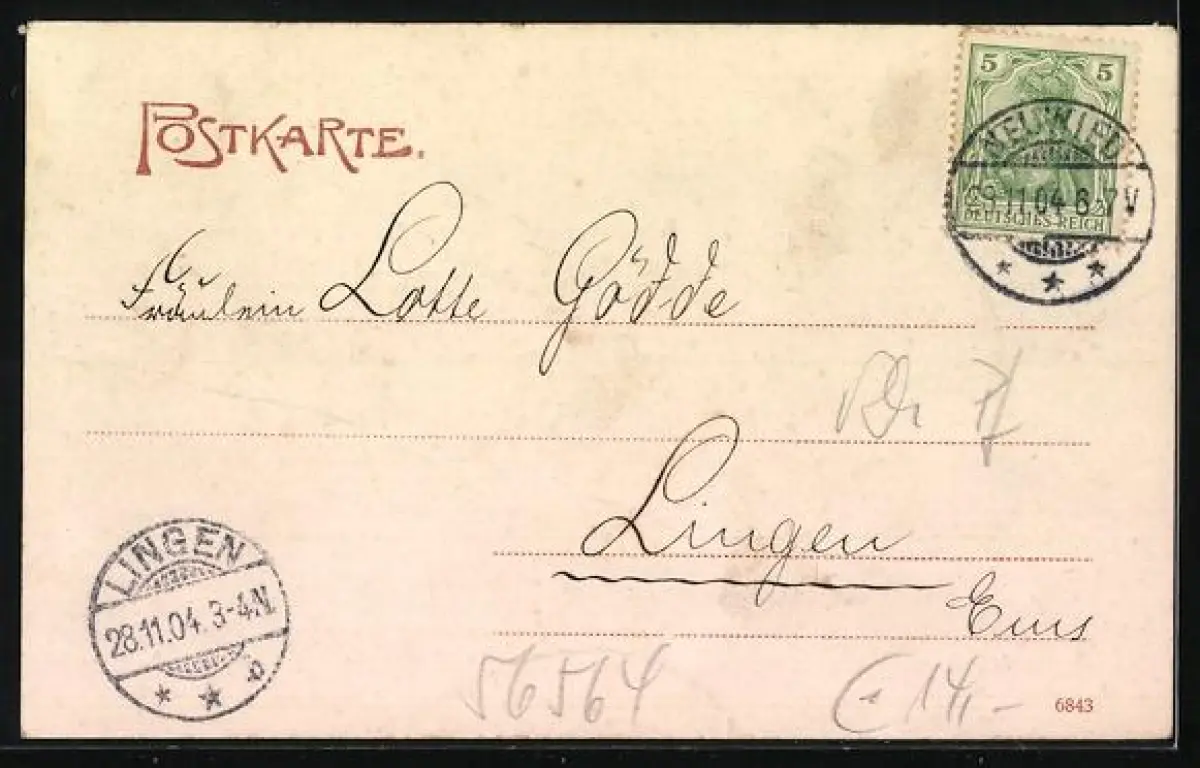 POSTKARTE.
5 5
DEUTSCHES REICH
NEUWIED
29.11.04 6-7V
Fräulein Lotte Gödde
Lingen
Ems
LINGEN
28.11.04. 3-4N.
56564
€ 14,-
6843